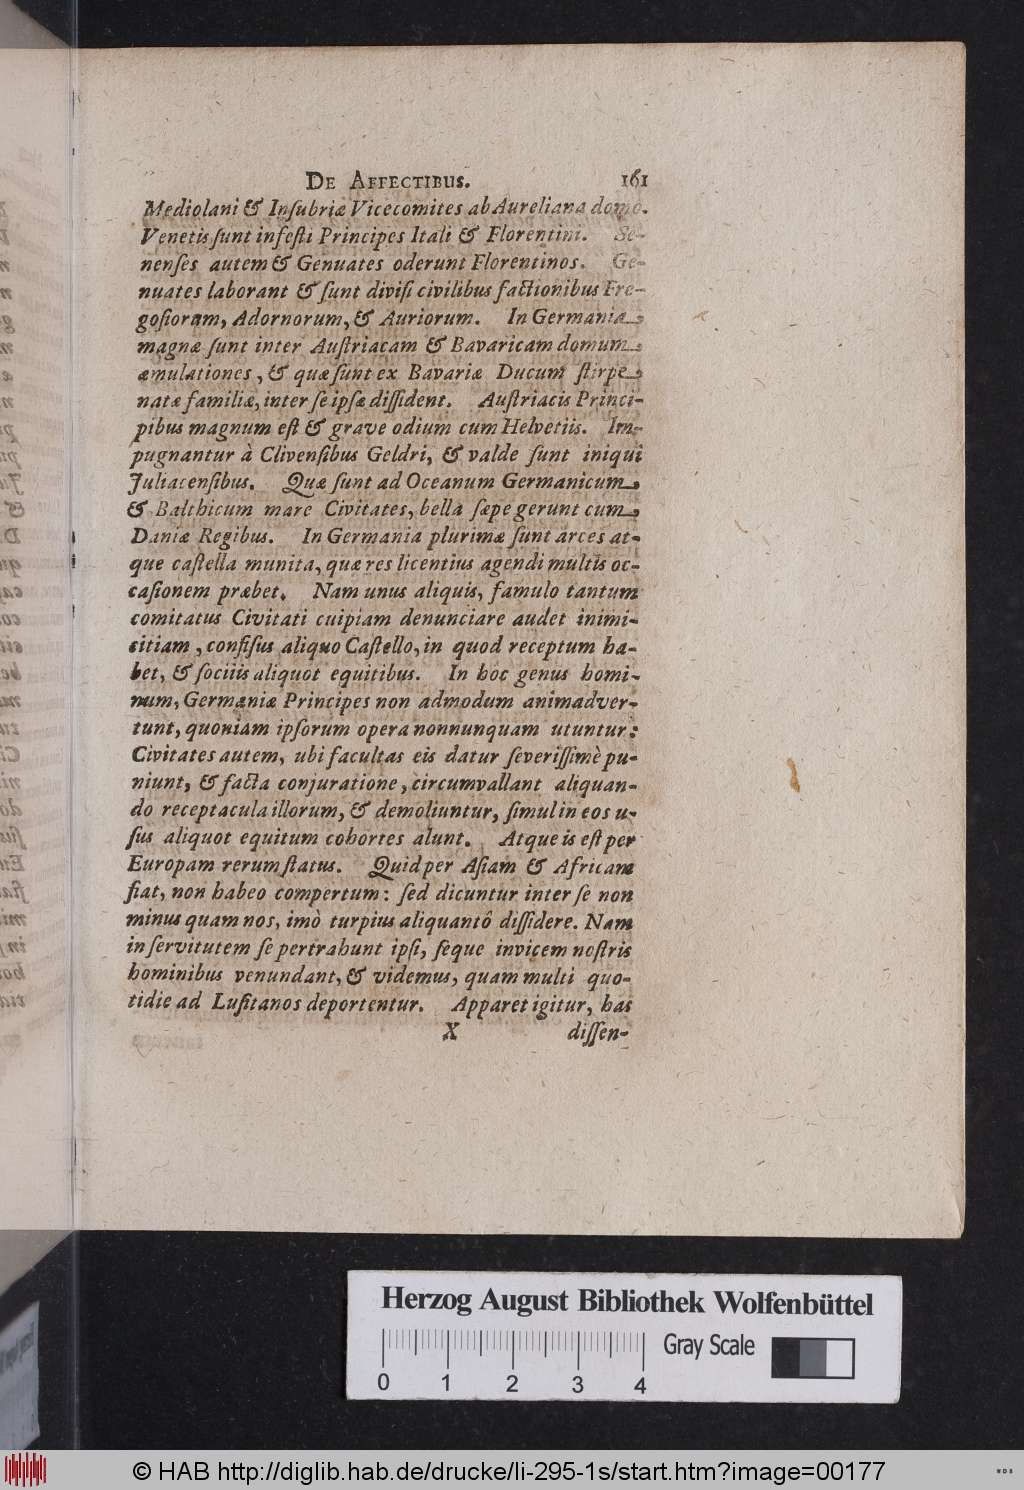 DE AFFECTIBUS. 161
Mediolani & Inſubriæ Vicecomites ab Aureliana domo.
Venetis ſunt infeſti Principes Itali & Florentini. Se-
nenſes autem & Genuates oderunt Florentinos. Ge-
nuates laborant & ſunt diviſi civilibus factionibus Fre-
goſiorum, Adornorum, & Auriorum. In Germania
magnæ ſunt inter Auſtriacam & Bavaricam domum
æmulationes, & quæ ſunt ex Bavariæ Ducum ſtirpe
natæ familiæ, inter ſe ipſæ diſſident. Auſtriacis Princi-
pibus magnum eſt & grave odium cum Helvetiis. Im-
pugnantur à Clivenſibus Geldri, & valde ſunt iniqui
Juliacenſibus. Quæ ſunt ad Oceanum Germanicum
& Balthicum mare Civitates, bella ſæpe gerunt cum
Daniæ Regibus. In Germania plurimæ ſunt arces at-
que caſtella munita, quæ res licentius agendi multis oc-
caſionem præbet. Nam unus aliquis, famulo tantum
comitatus Civitati cuipiam denunciare audet inimi-
citiam, confiſus aliquo Caſtello, in quod receptum ha-
bet, & ſociiis aliquot equitibus. In hoc genus homi-
num, Germaniæ Principes non admodum animadver-
tunt, quoniam ipſorum opera nonnunquam utuntur:
Civitates autem, ubi facultas eis datur ſeveriſſimè pu-
niunt, & facta conjuratione, circumvallant aliquan-
do receptacula illorum, & demoliuntur, ſimul in eos u-
ſus aliquot equitum cohortes alunt. Atque is eſt per
Europam rerum ſtatus. Quid per Aſiam & Africam
fiat, non habeo compertum: ſed dicuntur inter ſe non
minus quam nos, imò turpius aliquantô diſſidere. Nam
in ſervitutem ſe pertrahunt ipſi, ſeque invicem noſtris
hominibus venundant, & videmus, quam multi quo-
tidie ad Luſitanos deportentur. Apparet igitur, has
X diſſen-
Herzog August Bibliothek Wolfenbüttel
Gray Scale
0 1 2 3 4
© HAB http://diglib.hab.de/drucke/li-295-1s/start.htm?image=00177